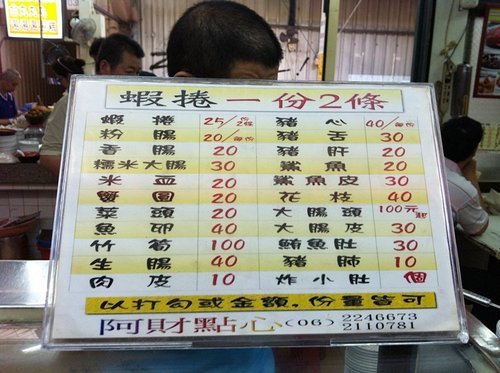 蝦捲一份2條
蝦捲 25/份2條 豬心 40/份
粉腸 20/份 豬舌 30
香腸 20 豬肝 20
糯米大腸 30 鯊魚 20
米血 20 鯊魚皮 30
蟹圓 20 花枝 40
菜頭 20 大腸頭 100元起
魚卵 40 大腸皮 30
竹筍 100 鮪魚肚 30
生腸 40 豬肺 10
肉皮 10 炸小肚 個
以打勾或金額,份量皆可
阿財點心 (06) 2246673
2110781